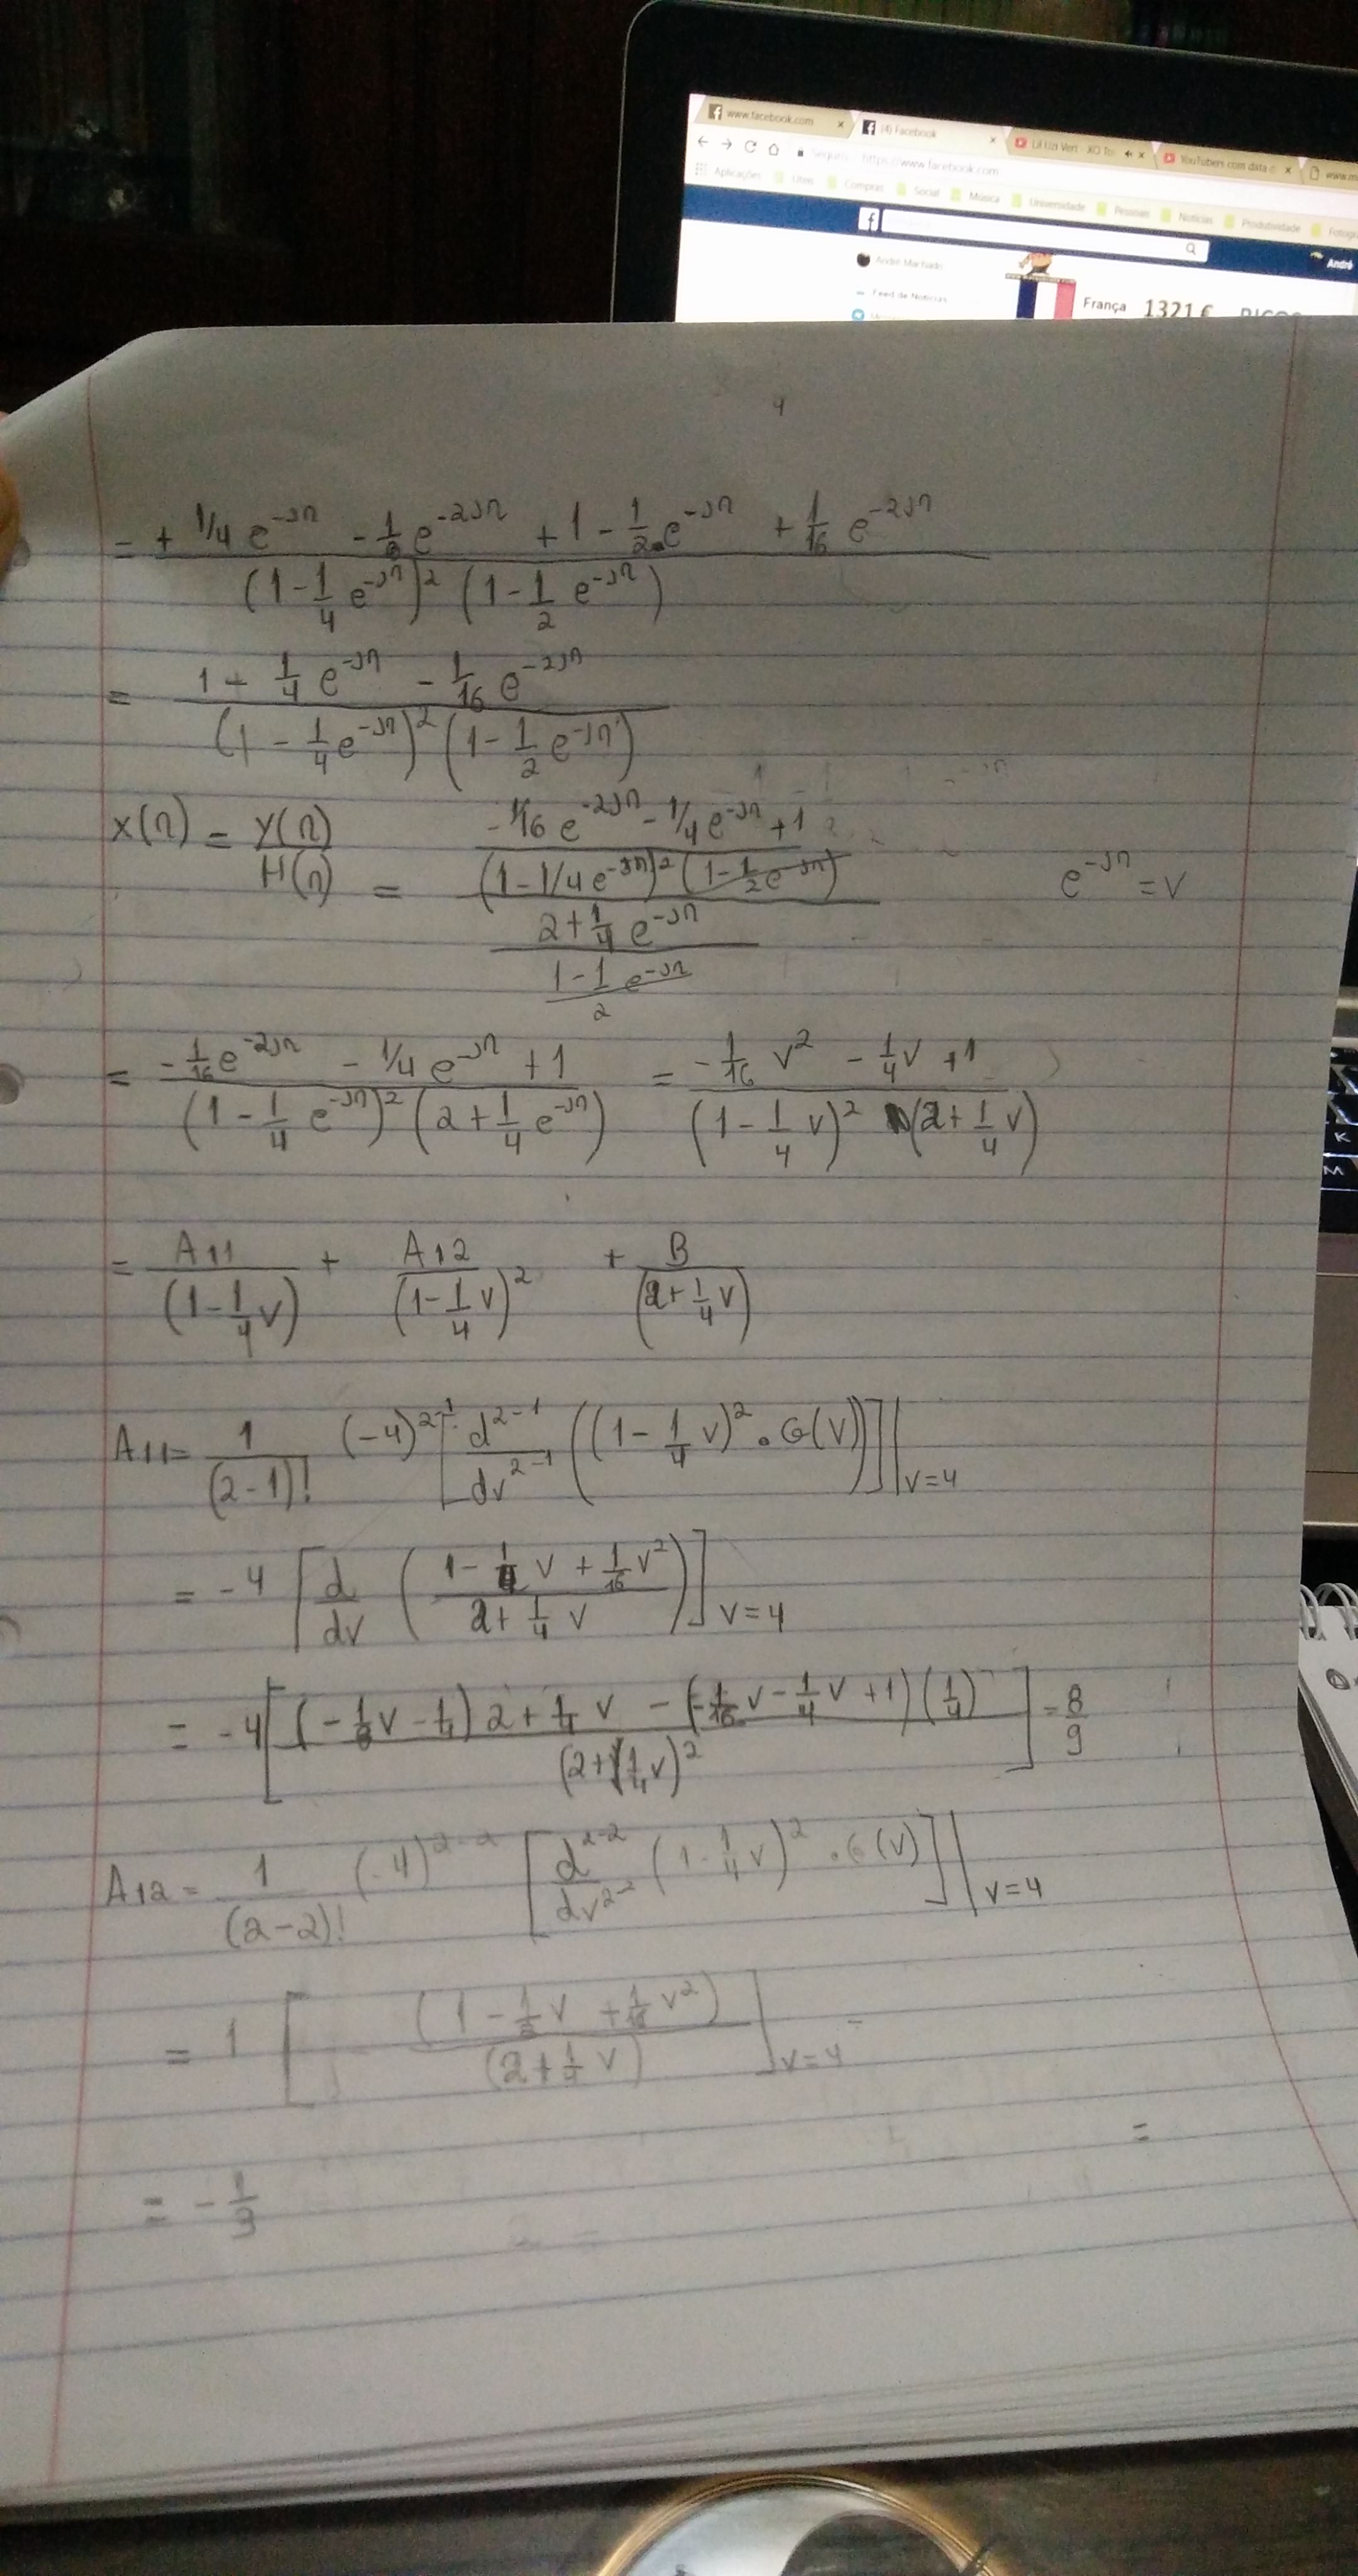 www.facebook.com (4) Facebook Lil Uzi Vert - XO To YouTubers com data d www.m
Seguro https://www.facebook.com
Aplicações Úteis Compras Social Música Universidade Pessoais Notícias Produtividade Fotogr
André
André Machado
Feed de Notícias
França 1321 €
4
= + 1/4 e^{-jΩ} - 1/8 e^{-2jΩ} + 1 - 1/2 e^{-jΩ} + 1/16 e^{-2jΩ} / (1 - 1/4 e^{-jΩ})^2 (1 - 1/2 e^{-jΩ})
= 1 - 1/4 e^{-jΩ} - 1/16 e^{-2jΩ} / (1 - 1/4 e^{-jΩ})^2 (1 - 1/2 e^{-jΩ})
X(Ω) = Y(Ω) / H(Ω) = (-1/16 e^{-2jΩ} - 1/4 e^{-jΩ} + 1 / (1 - 1/4 e^{-jΩ})^2 (1 - 1/2 e^{-jΩ})) / (2 + 1/4 e^{-jΩ} / 1 - 1/2 e^{-jΩ}) e^{-jΩ} = v
= -1/16 e^{-2jΩ} - 1/4 e^{-jΩ} + 1 / (1 - 1/4 e^{-jΩ})^2 (2 + 1/4 e^{-jΩ}) = -1/16 v^2 - 1/4 v + 1 / (1 - 1/4 v)^2 (2 + 1/4 v)
= A11 / (1 - 1/4 v) + A12 / (1 - 1/4 v)^2 + B / (2 + 1/4 v)
A11 = 1 / (2-1)! (-4)^{2-1} [d^{2-1} / dv^{2-1} ((1 - 1/4 v)^2 . G(v))]|v=4
= -4 [d/dv (1 - 1/4 v + 1/16 v^2 / 2 + 1/4 v)] v=4
= -4 [(-1/8 v - 1/4) 2 + 1/4 v - (-1/16 v - 1/4 v + 1)(1/4) / (2 + 1/4 v)^2] = 8/9
A12 = 1 / (2-2)! (-4)^{2-2} [d^{2-2} / dv^{2-2} (1 - 1/4 v)^2 . G(v)]|v=4
= 1 [(1 - 1/2 v + 1/16 v^2) / (2 + 1/4 v)] v=4
=
= -1/3